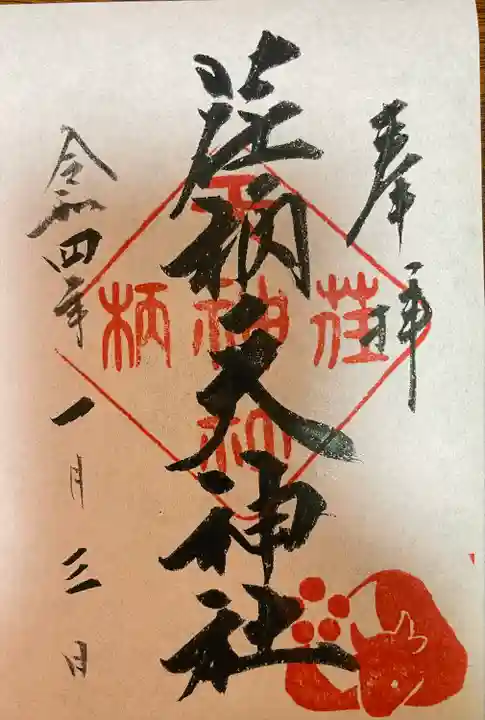 奉拝
荏柄天神社
令和四年一月三日
荏柄天神社